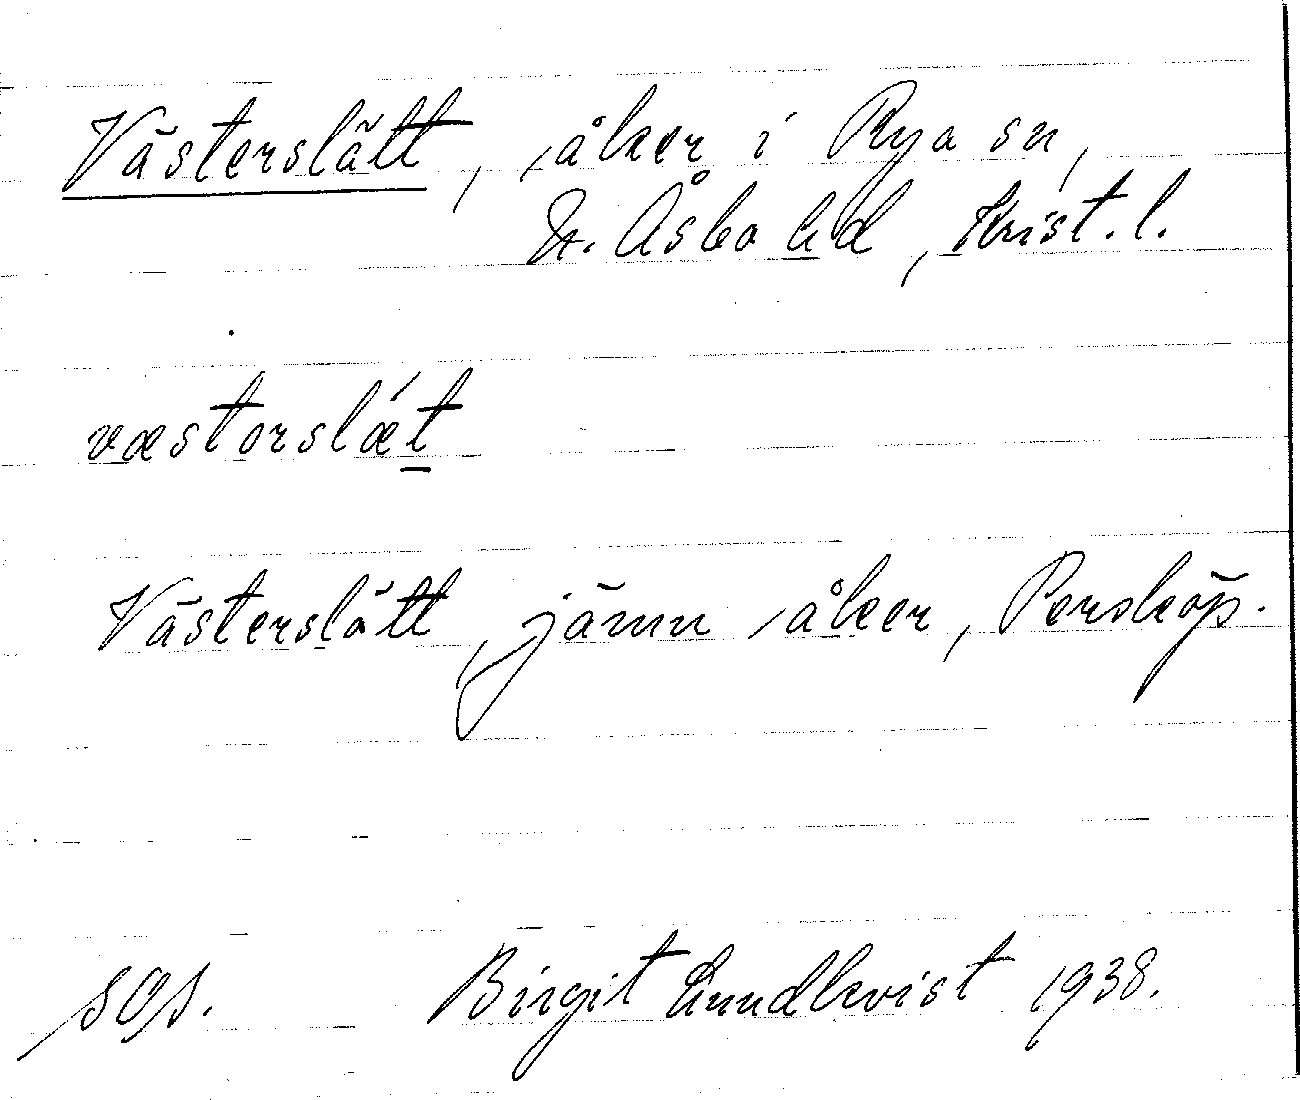 Västerslätt, åker i Rya sn,
N. Åsbo hd, Krist. l.
væstorslǽt
Västerslätt, jämn åker, Persköp.
SOS. Birgit Lundkvist 1938.